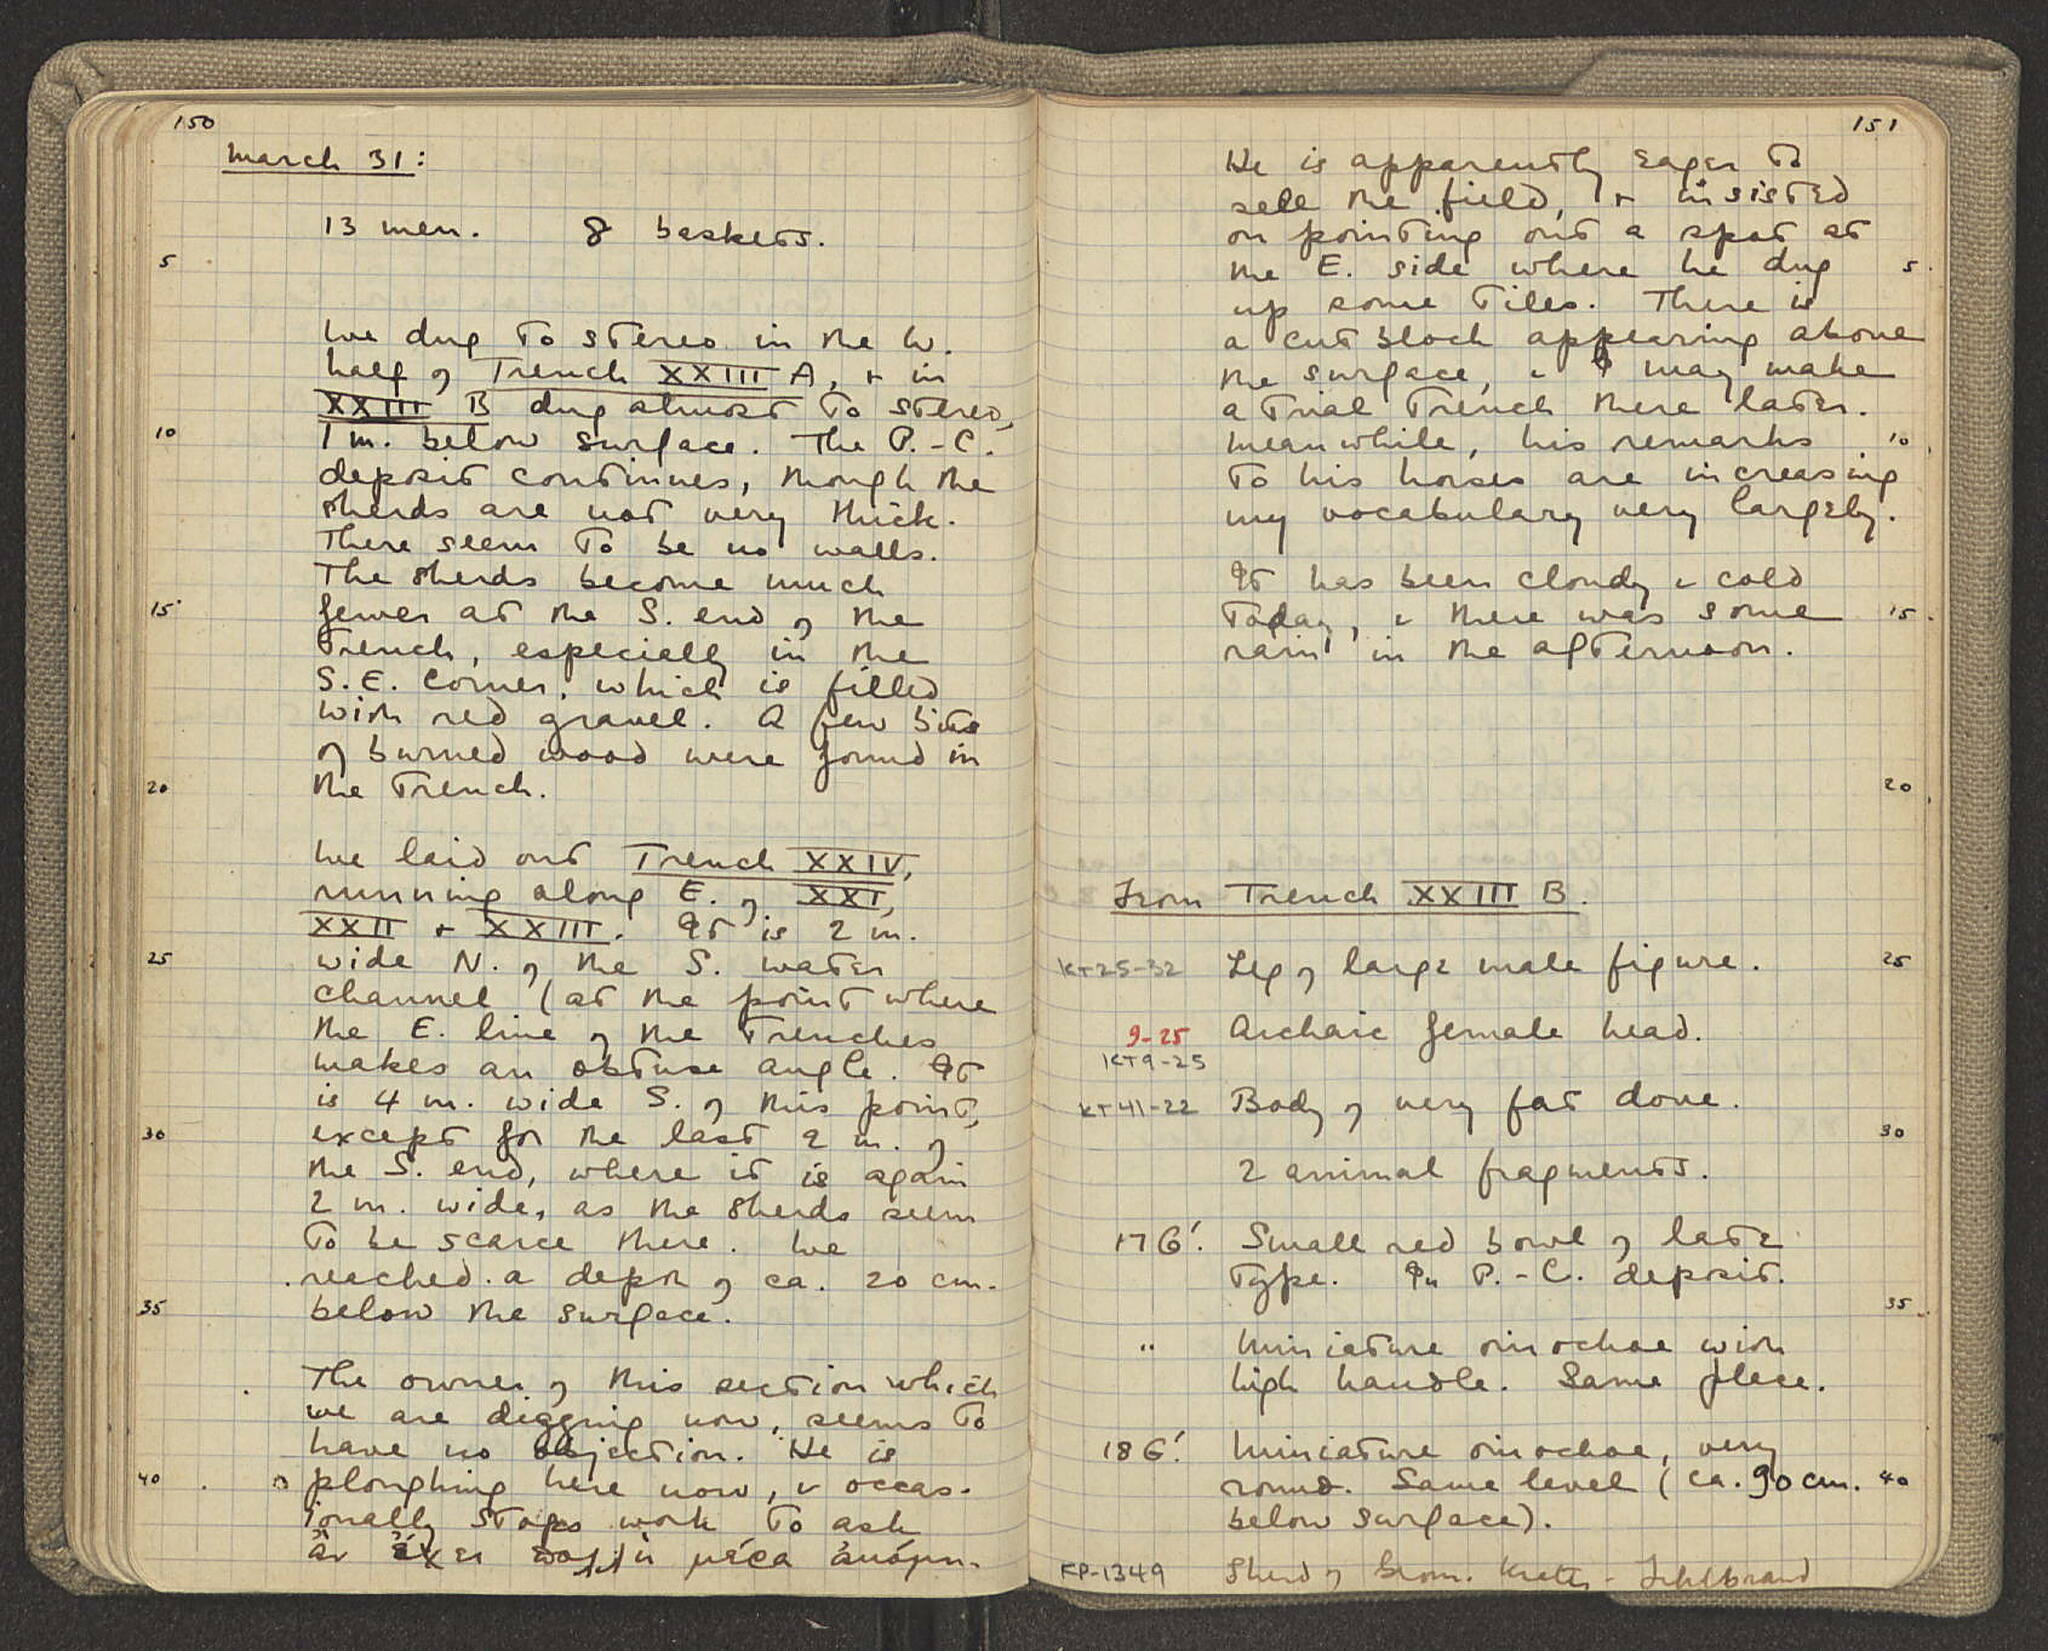 150
March 31:
13 men. 8 baskets.
5
We dug to stereo in the W.
half of Trench XXIII A, + in
XXIII B dug almost to stereo,
10 1 m. below surface. The P.-C.
deposit continues, though the
sherds are not very thick.
There seem to be no walls.
The sherds become much
15 fewer at the S. end of the
trench, especially in the
S.E. corner, which is filled
with red gravel. A few bits
of burned wood were found in
20 the trench.
We laid out Trench XXIV,
running along E. of XXI,
XXII + XXIII. It is 2 m.
25 wide N. of the S. water
channel (at the point where
the E. line of the trenches
makes an obtuse angle. It
is 4 m. wide S. of this point,
30 except for the last 2 m. of
the S. end, where it is again
2 m. wide, as the sherds seem
to be scarce there. We
reached a depth of ca. 20 cm.
35 below the surface.
The owner of this section which
we are digging now, seems to
have no objection. He is
40 ploughing here now, + occas-
ionally stops work to ask
ἂν ἔχει μέσα ἀκόμη.
151
He is apparently eager to
sell the field, + insisted
on pointing out a spot at
the E. side where he dug 5
up some tiles. There is
a cut block appearing above
the surface, + I may make
a trial trench there later.
Meanwhile, his remarks 10
to his horses are increasing
my vocabulary very largely.
It has been cloudy + cold
today, + there was some 15
rain in the afternoon.
20
From Trench XXIII B.
KT25-32 Leg of large male figure. 25
9-25 Archaic female head.
KT9-25
KT41-22 Body of very fat dove.
30
2 animal fragments.
17 G'. Small red bowl of late
type. In P.-C. deposit.
35
" Miniature oinochoe with
high handle. Same place.
18 G'. Miniature oinochoe, very
round. Same level (ca. 90 cm. 40
below surface).
KP-1349 Sherd of Geom. Krater -